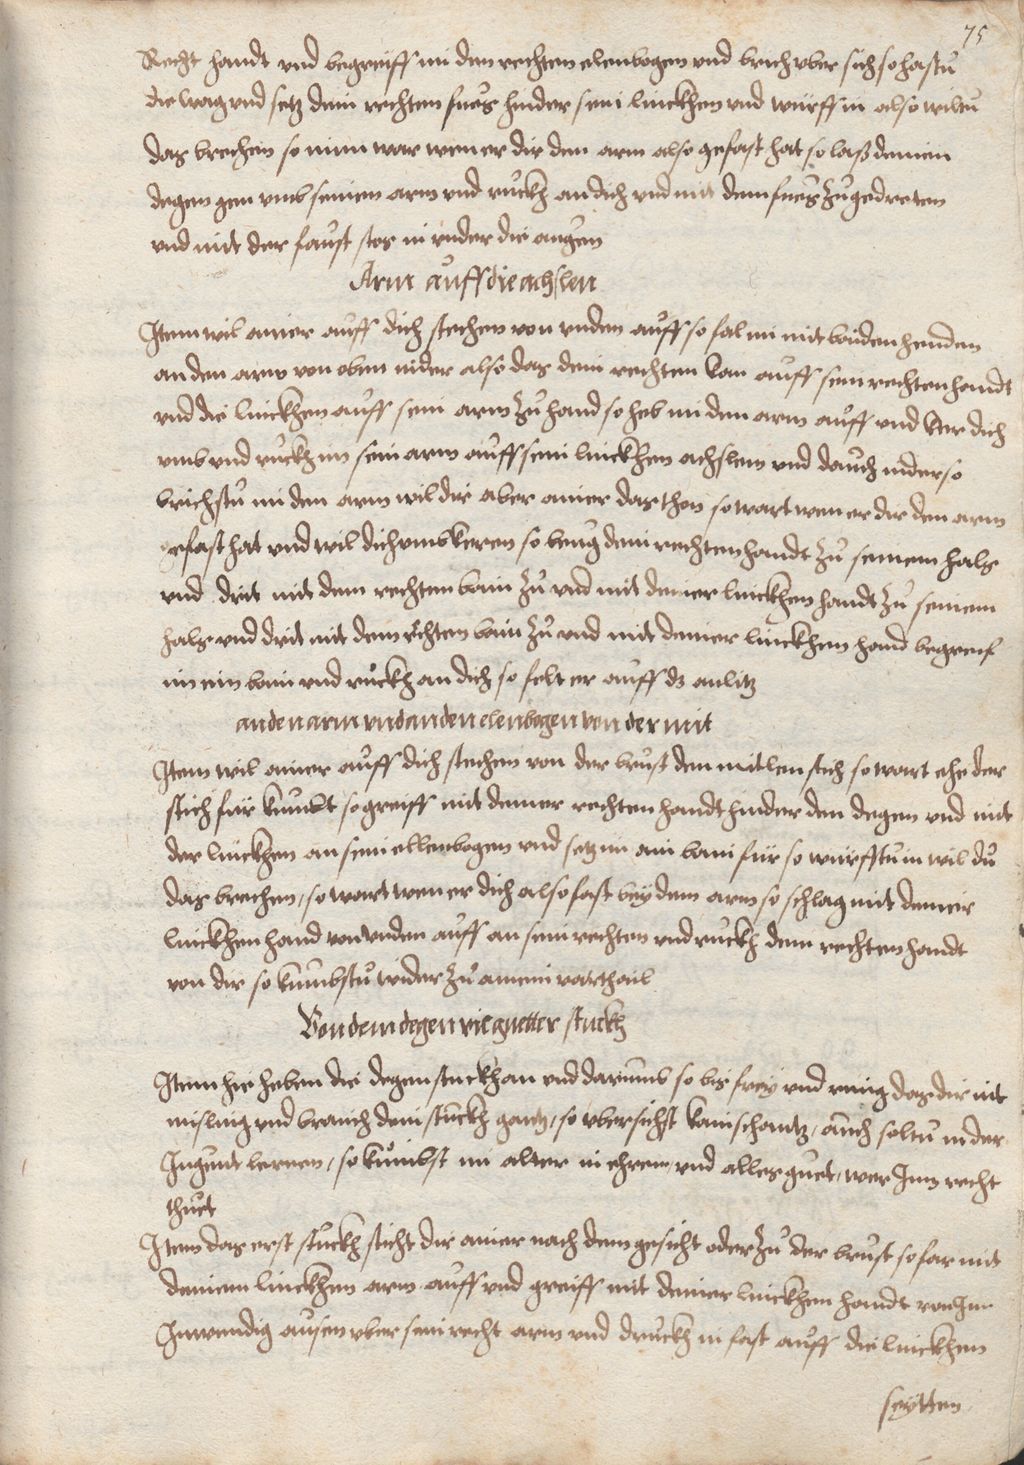 75
Recht handt vnd begreiff im den rechten elenbogen vnd brich vber sich so hastu
die wag vnd setz dein rechten fues hinder sein linckhen vnd würff in also wiltu
das brechen so nim war wen er dir den arm also gefast hat so laß deinen
degen gen vmb seinen arm vnd ruckh an dich vnd mit dem fues zu gedreten
vnd mit der faust stos in vnder die augen
Arm auff die achslen
Item wil ainer auff dich stechen von vnden auff so fal im mit baiden henden
an den arm von oben nider also das dein rechten kan auff sein rechten handt
vnd die linckhen auff sein arm zu hand so heb im den arm auff vnd ker dich
vmb vnd ruckh im sein arm auff sein linckhen achslen vnd dauch nider so
brichstu im den arm wil dir aber ainer das thon so wart wen er dir den arm
gefast hat vnd wil dich vmbkeren so beug dein rechten handt zu seinem hals
vnd drit mit dem rechten bain zu vnd mit deiner linckhen handt zu seinem
hals vnd drit mit dem rechten bain zu vnd mit deiner linckhen hand begreif
im ein bain vnd ruckh an dich so felt er auff dz anlitz
an den arm vnd an den elenbogen von der mit
Item wil ainer auff dich stechen von der brust den mitlen stich so wart ehe der
stich für kumbt so greiff mit deiner rechten handt hinder den degen vnd mit
der linckhen an sein ellenbogen vnd setz im ain bain für so würfftu in wil du
das brechen, so wart wen er dich also fast bey dem arm so schlag mit deiner
linckhen hand von vnden auff an sein rechten vnd ruckh dein rechten handt
von dir so kumbstu wider zu ainem vorthail
Von dem degen vil guetter stuckh
Item hie heben die degen stuckh an vnd darumb so bis frey vnd ring das dir nit
misling vnd brauch dein stuckh gantz, so vbersichst kain schantz, auch soltu in der
Jugent lernen, so kumbst im alter in ehren, vnd alles guet, wer Jmm recht
thuet
Item das erst stuckh sticht dir ainer nach dem gesicht oder zu der brust so far mit
deinem linckhen arm auff vnd greiff mit deiner linckhen handt von Im
Inwendig ausen vber sein recht arm vnd druckh in fast auff die linckhen
seytten